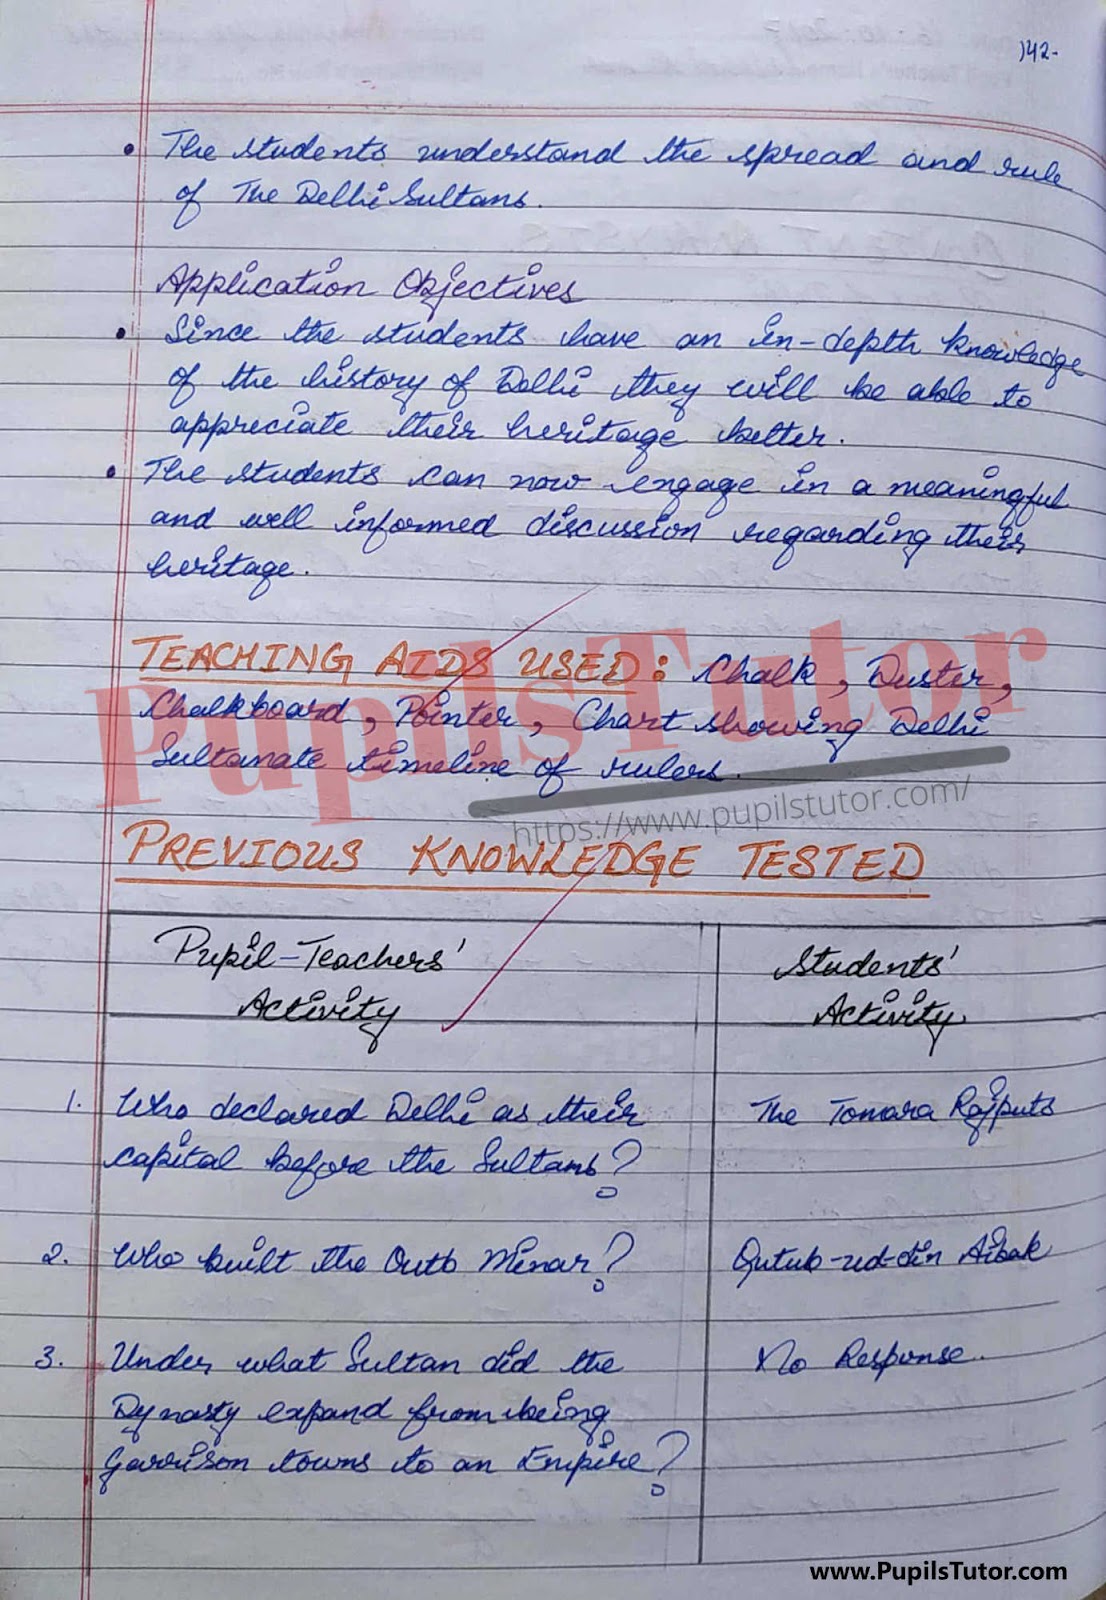 142-
• The students understand the spread and rule
of The Delhi Sultans.
Application Objectives
• Since the students have an in-depth knowledge
of the history of Delhi they will be able to
appreciate their heritage better.
• The students can now engage in a meaningful
and well informed discussion regarding their
heritage.
TEACHING AIDS USED: Chalk, Duster,
Chalkboard, Pointer, Chart showing Delhi
Sultanate timeline of rulers.
PupilsTutor
https://www.pupilstutor.com/
PREVIOUS KNOWLEDGE TESTED
Pupil-Teachers' Students'
Activity Activity
1. Who declared Delhi as their The Tomara Rajputs
capital before the Sultans?
2. Who built the Qutb Minar? Qutub-ud-din Aibak
3. Under what Sultan did the No Response.
Dynasty expand from being
Garrison towns to an Empire?
www.PupilsTutor.com